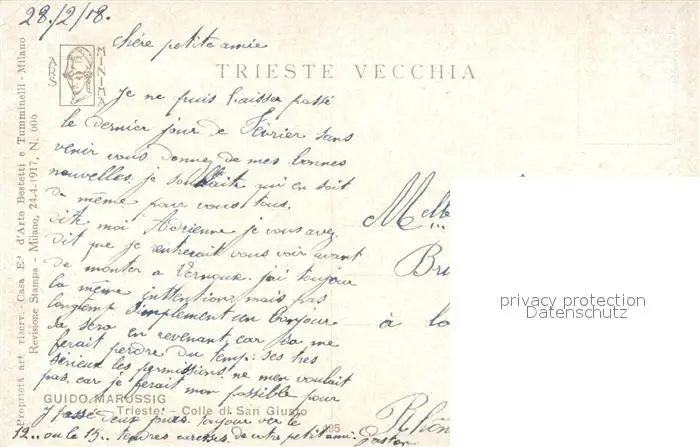 28/2/18.
chére petite amie
TRIESTE VECCHIA
ARS MINIMA
Je ne puis laisser passé
le dernier jour de Février sans
venir vous donnez de mes bonnes
nouvelles. je souhaite qui en soit
de même pour vous tous.
dite moi Adrienne je vous avez
dit que je rentrerait vous voir avant
de monter a Vernoux. j'ai toujour
la même intention, mais pas
longtemp simplement un bonjour
sa sera en revenant, car sa me
ferait perdre du temp: ses tres
sérieux les permissions. ne men voulait
pas. car je ferait mon possible pour
y passé deux jours. toujour ver le
12.. ou le 15.. tendres caresses de votre petit ami. Gaston
Melle
Bri
à la
Rhôn
GUIDO MARUSSIG
Trieste - Colle di San Giusto
Proprietà art. riserv. Casa Ed. d'Arte Bestetti e Tumminelli - Milano
Revisione Stampa - Milano, 24-4-1917, N. 606
privacy protection
Datenschutz